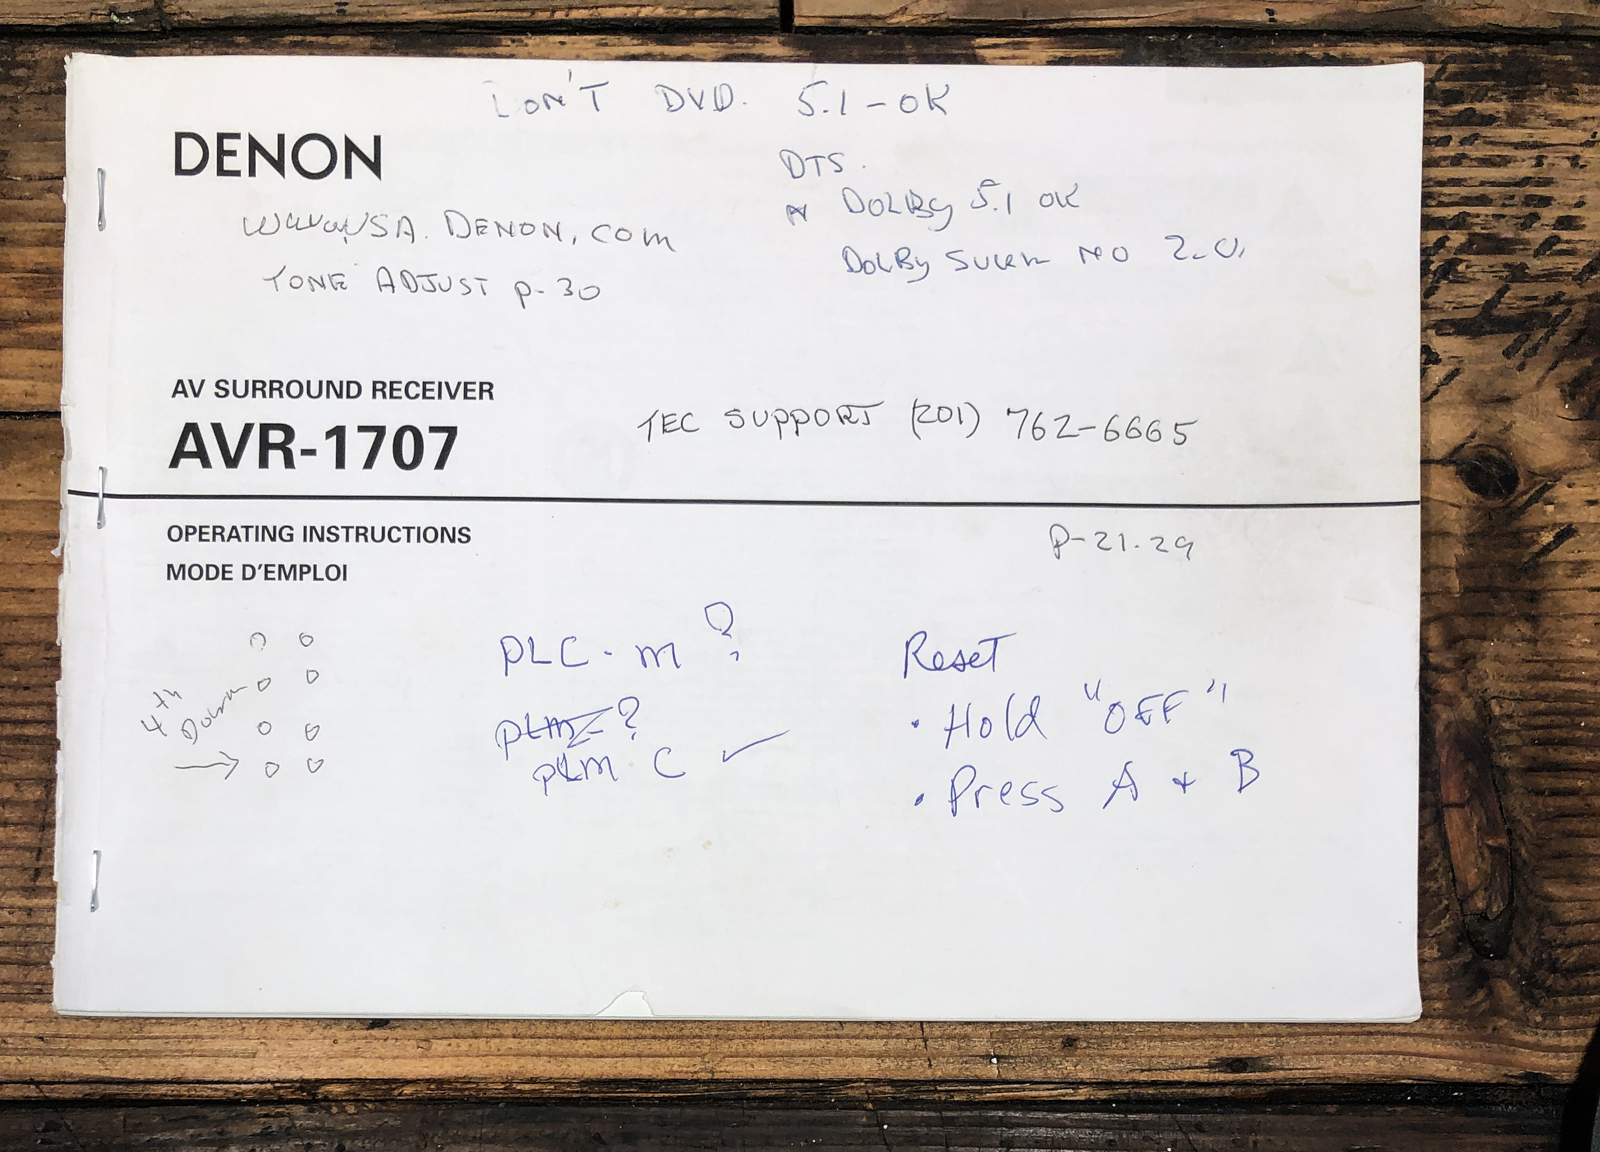 DON'T DVD. 5.1-OK
DENON
DTS.
DOLBY 5.1 OK
DOLBY NO 2.0.
USA.DENON.COM
TONE ADJUST p-30
AV SURROUND RECEIVER
AVR-1707
TEC SUPPORT (201) 762-6665
OPERATING INSTRUCTIONS
MODE D'EMPLOI
P-21.29
4th
Down
PLC-m ?
PLMZ ?
PLM C ✓
Reset
• Hold "OFF"
• Press A + B